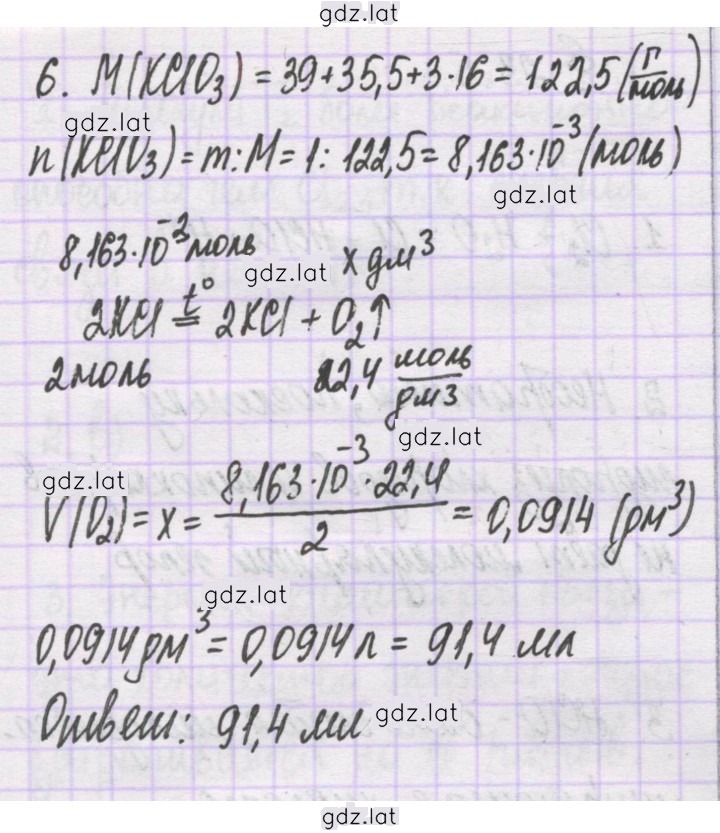 gdz.lat
6. M(KClO₃) = 39+35,5+3·16 = 122,5 (г/моль)
gdz.lat
n(KClO₃) = m:M = 1: 122,5 = 8,163·10⁻³ (моль)
gdz.lat
8,163·10⁻³ моль x дм³
gdz.lat
2KCl t°= 2KCl + O₂↑
2моль 22,4 моль/дм3
gdz.lat
gdz.lat
V(O₂) = x = 8,163·10⁻³·22,4/2 = 0,0914 (дм³)
gdz.lat
0,0914 дм³ = 0,0914 л = 91,4 мл
Ответ: 91,4 мл
gdz.lat
gdz.lat